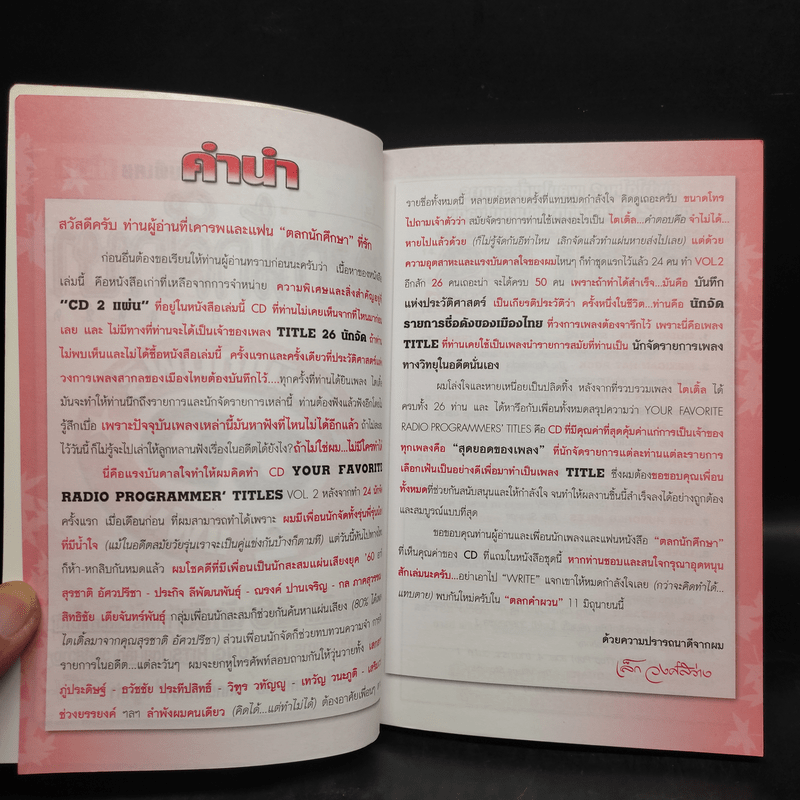 คำนำ
สวัสดีครับ ท่านผู้อ่านที่เคารพและแฟน “ตลกนักศึกษา” ที่รัก
ก่อนอื่นต้องขอเรียนให้ท่านผู้อ่านทราบก่อนนะครับว่า เนื้อหาของหนังสือ
เล่มนี้ คือหนังสือเก่าที่เหลือจากการจำหน่าย ความพิเศษและสิ่งสำคัญอยู่ที่
“CD 2 แผ่น” ที่อยู่ในหนังสือเล่มนี้ CD ที่ท่านไม่เคยเห็นจากที่ไหนมาก่อน
เลย และ ไม่มีทางที่ท่านจะได้เป็นเจ้าของเพลง TITLE 26 นักจัด ถ้าท่าน
ไม่พบเห็นและไม่ได้ซื้อหนังสือเล่มนี้ ครั้งแรกและครั้งเดียวที่ประวัติศาสตร์และ
วงการเพลงสากลของเมืองไทยต้องบันทึกไว้....ทุกครั้งที่ท่านได้ยินเพลง ไตเติ้ล
มันจะทำให้ท่านนึกถึงรายการและนักจัดรายการเหล่านี้ ท่านต้องฟังแล้วฟังอีกโดยไม่
รู้สึกเบื่อ เพราะปัจจุบันเพลงเหล่านี้มันหาฟังที่ไหนไม่ได้อีกแล้ว ถ้าไม่
ไว้วันนี้ ก็ไม่รู้จะไปเล่าให้ลูกหลานฟังเรื่องในอดีตได้ยังไง? ถ้าไม่ใช่ผม...ไม่มีใครทำ
นี่คือแรงบันดาลใจทำให้ผมคิดทำ CD YOUR FAVORITE
RADIO PROGRAMMER’ TITLES VOL 2 หลังจากทำ 24 นักจัด
ครั้งแรก เมื่อเดือนก่อน ที่ผมสามารถทำได้เพราะ ผมมีเพื่อนนักจัดทั้งรุ่นพี่รุ่นน้อง
ที่มีน้ำใจ (แม้ในอดีตสมัยวัยรุ่นเราจะเป็นคู่แข่งกันบ้างก็ตามที) แต่วันนี้หันไปทาง
ก็ห้า-หกสิบกันหมดแล้ว ผมโชคดีที่มีเพื่อนเป็นนักสะสมแผ่นเสียงยุค ’60
สุรชาติ อัศวปรีชา - ประกิจ ลีพัฒนพันธุ์ - ณรงค์ ปานเจริญ - กล ภาคสุวรรณ
สิทธิชัย เตียจันทร์พันธุ์ กลุ่มเพื่อนนักสะสมก็ช่วยกันค้นหาแผ่นเสียง (80%
ไตเติ้ลมาจากคุณสุรชาติ อัศวปรีชา) ส่วนเพื่อนนักจัดก็ช่วยทบทวนความจำ
รายการในอดีต...แต่ละวันๆ ผมจะยกหูโทรศัพท์สอบถามกันให้วุ่นวายทั้ง
ภู่ประดิษฐ์ - ธวัชชัย ประทีปสิทธิ์ - วิฑูร วทัญญู - เทวัญ วนะภูติ -
ช่วงยรรยงค์ ฯลฯ ลำพังผมคนเดียว (คิดได้...แต่ทำไม่ได้) ต้องอาศัยเพื่อนๆ
รายชื่อทั้งหมดนี้ หลายต่อหลายครั้งที่แทบหมดกำลังใจ คิดดูเถอะครับ ขนาดโทร
ไปถามเจ้าตัวว่า สมัยจัดรายการท่านใช้เพลงอะไรเป็น ไตเติ้ล...คำตอบคือ จำไม่ได้...
หายไปแล้วด้วย (ก็ไม่รู้จัดกันอีท่าไหน เลิกจัดแล้วทำแผ่นหายส่งไปเลย) แต่ด้วย
ความอุตสาหะและแรงบันดาลใจของผมไหนๆ ก็ทำชุดแรกไว้แล้ว 24 คน ทำ VOL.2
อีกสัก 26 คนเถอะน่า จะได้ครบ 50 คน เพราะถ้าทำได้สำเร็จ...มันคือ บันทึก
แห่งประวัติศาสตร์ เป็นเกียรติประวัติว่า ครั้งหนึ่งในชีวิต...ท่านคือ นักจัด
รายการชื่อดังของเมืองไทย ที่วงการเพลงต้องจารึกไว้ เพราะนี่คือเพลง
TITLE ที่ท่านเคยใช้เป็นเพลงนำรายการสมัยที่ท่านเป็น นักจัดรายการเพลง
ทางวิทยุในอดีตนั่นเอง
ผมโล่งใจและหายเหนื่อยเป็นปลิดทิ้ง หลังจากที่รวบรวมเพลง ไตเติ้ล ได้
ครบทั้ง 26 ท่าน และ ได้หารือกับเพื่อนทั้งหมดสรุปความว่า YOUR FAVORITE
RADIO PROGRAMMERS’ TITLES คือ CD ที่มีคุณค่าที่สุดคุ้มค่าแก่การเป็นเจ้าของ
ทุกเพลงคือ “สุดยอดของเพลง” ที่นักจัดรายการแต่ละท่านแต่ละรายการ
เลือกเฟ้นเป็นอย่างดีเพื่อมาทำเป็นเพลง TITLE ซึ่งผมต้องขอขอบคุณเพื่อน
ทั้งหมดที่ช่วยกันสนับสนุนและให้กำลังใจ จนทำให้ผลงานชิ้นนี้สำเร็จลงได้อย่างถูกต้อง
และสมบูรณ์แบบที่สุด
ขอขอบคุณท่านผู้อ่านและเพื่อนนักเพลงและแฟนหนังสือ “ตลกนักศึกษา”
ที่เห็นคุณค่าของ CD ที่แถมในหนังสือชุดนี้ หากท่านชอบและสนใจกรุณาอุดหนุน
สักเล่มนะครับ...อย่าเอาไป “WRITE” แจกเขาให้หมดกำลังใจเลย (กว่าจะคิดทำได้...
แทบตาย) พบกันใหม่ครับใน “ตลกคำผวน” 11 มิถุนายนนี้
ด้วยความปรารถนาดีจากผม
เล็ก วงศ์สว่าง